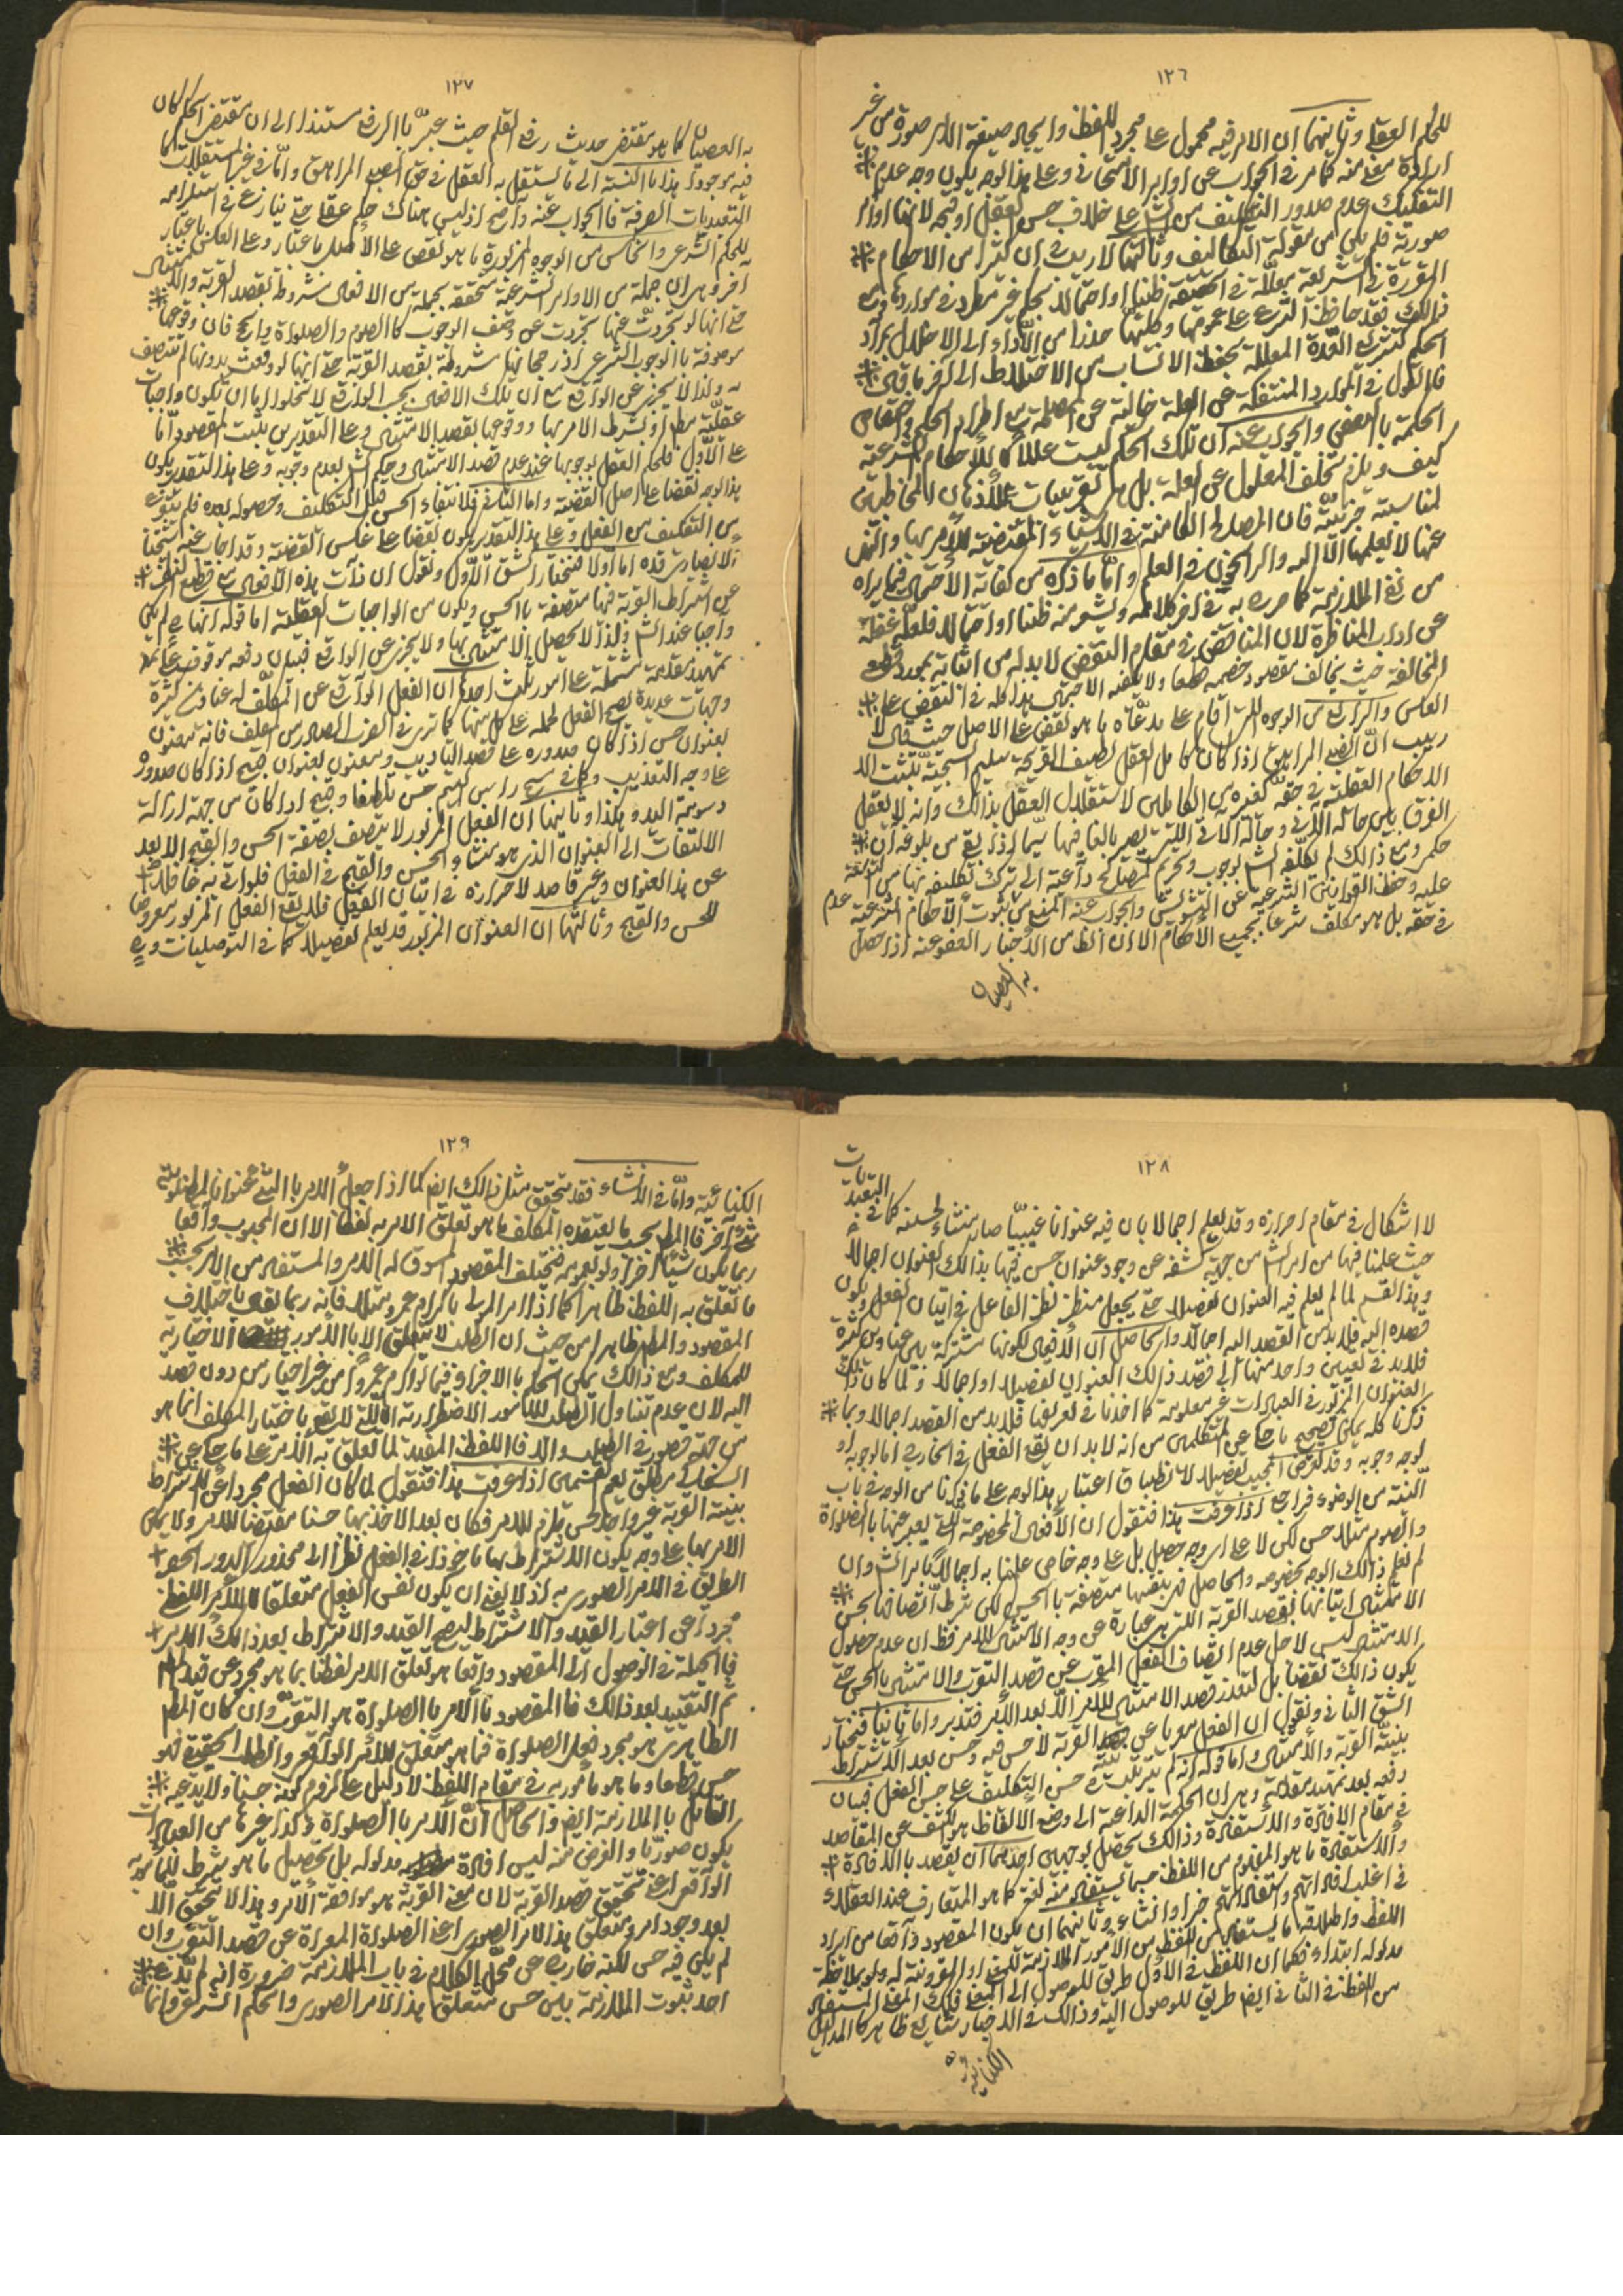 ١٢٦
للحكم العقلي وثانيهما ان الامر فيه محمول على مجرد اللفظ وايجاد صيغة الامر صورة من غير
ارادة معنى منه كما مر في الجواب عن اوامر الامتحان وعلى هذا الوجه يكون وجه عدم
التفكيك عدم صدور التكليف من الش على خلاف حسن العقل او قبحه لانها اوامر
صورية فلم يكن من مقولة التكاليف وثالثها لا ريب في ان كثيرا من الاحكام
المقررة في الشريعة معللة في الحقيقة ظنا او احتمالا بحكم غير مطرد في مواردها ومع
ذالك فقد حافظ الشرع على عمومها وكليتها حذرا من الاداء الى الاخلال بمراد
الحكم كتشريع العدة المعللة بحفظ الانساب من الاختلاط الى آخر ما قال
فالحكم في الموارد المنتفكة عن العلة خالية عن المصلحة مع اطراد الحكم واختصاص
الحكمة بالبعض والجواب عنه ان تلك الحكم ليست عللا للاحكام الشرعية
كيف ويلزم تخلف المعلول عن العلة بل هي تقريبات للاذهان المخاطبين
لمناسبة جزئية فان المصالح الكامنة في الاشياء المقتضية للامر بها والنهي
عنها لا يعلمها الا الله والراسخون في العلم واما ما ذكره من كفاية الاحتمال فيما يراه
من نفي الملازمة كما صرح به في آخر كلامه ويشعر منه ظنا او احتمالا فلعله غفلة
عن اداب المناظرة لان المناقض في مقام النقض لا بد له من اثباته بمورد
المخالفة حيث يخالف مقصود خصمه قطعا ولا يكفيه الاحتمال هذا كله في النقض على
العكس والرابع من الوجوه التي اقام على مدعاه ما هو نقض على الاصل حيث قال لا
ريب ان الصبي المراهق اذا كان كامل العقل لطيف القريحة سليم السجية تثبت
الاحكام العقلية في حقه كغيره من الكاملين لاستقلال العقل بذالك وانه لا يعقل
الفرق بين حاله الآن وحاله الآتي التي يصير بالغا فيها سيما اذا بقي من بلوغه آن
حكمي ومع ذالك لم يكلفه الش بوجوب وتحريم لمصالح داعية الى ترك تكليفه بهما من التوسعة
عليه وحفظ القوانين الشرعية عن التشويش والجواب عنه المنع من ثبوت الاحكام الشرعية عدم
في حقه بل هو مكلف شرعا بجميع الاحكام الا ان الظ من الاخبار العفو عنه اذا حصل
به العصيان
١٢٧
به العصيان كما هو مقتضى حديث رفع القلم حيث عبر با الرفع مستندا الى ان مقتضى الحكم كان
فيه موجودا هذا با النسبة الى ما يستقل به العقل في حق الصبي المراهق واما في غير المستقلات
التعبديات الصرفة فا الجواب عنه واضح اذ ليس هناك حكم عقلي حتى ينازع في استلزامه
للحكم الشرعي والخامس من الوجوه المزبورة ما هو نقض على الاصل باعتبار وعلى العكس باعتبار
آخر وهو ان جملة من الاوامر الشرعية متحققة بجملة من الافعال مشروطة بقصد القربة والامتثال
حتى انها لو تجردت عنها تجردت عن وصف الوجوب كا الصوم والصلواة والحج فان وقوعها
موصوفة با الوجوب الشرعي او رجحانها مشروطة بقصد القربة حتى انها لو وقعت بدونها لم تتصف
به ولذا لا يجزي عن الواقع مع ان تلك الافعال بحسب الواقع لا تخلوا اما ان تكون واجبات
عقلية مطلقا او بشرط الامر بها ووقوعها بقصد الامتثال وعلى التقديرين يثبت المقصود اما
على الاول فلحكم العقل بوجوبها عند عدم قصد الامتثال وحكم الش بعدم وجوبه وعلى هذا التقدير يكون
هذا الوجه نقضا على اصل القضية واما الثاني فلانتفاء الحسن قبل التكليف وحصوله بعده فلم يتفرع
حسن التكليف من الفعل وعلى هذا التقدير يكون نقضا على عكس القضية وقد اجاب عنه شيخنا
الانصاري قده اما اولا فنختار الشق الاول ونقول ان ذات هذه الافعال مع قطع النظر
عن اشتراط القربة فيها متصفة با الحسن ويكون من الواجبات العقلية اما قوله انها لم يكن
واجبا عند الش ولذا لا يحصل الامتثال بها ولا يجزي عن الواقع فبيان دفعه موقوف على
تمهيد مقدمة مشتملة على امور ثلث احدها ان الفعل الواقع عن المكلف له عناوين كثيرة
وجهات عديدة يصح الفعل لحمله على كل منها كما ترى في الضرب الصادر من المكلف فانه يتعنون
بعنوان حسن اذا كان صدوره على قصد التأديب ويتعنون بعنوان قبيح اذا كان صدوره
على وجه التعذيب وكما في مسح راس اليتيم حسن تلطفا وقبيح اذا كان من جهة ازالة
دسومة اليد وهكذا وثانيها ان الفعل المزبور لا يتصف بصفة الحسن والقبح الا بعد
الالتفات الى العنوان الذي هو منشأ والحسن والقبح في الفعل فلو اتى به غافلا
عن هذا العنوان وغير قاصد لاحرازه في اتيان الفعل فلا يقع الفعل المزبور معروضا
للحسن والقبح وثالثها ان العنوان المزبور قد يعلم تفصيلا كما في التوصليات وح
١٢٨
لا اشكال في مقام احرازه وقد يعلم اجمالا بان فيه عنوانا غيبيا صار منشاء لحسنه كما في التعبديات
حيث علمنا فيها من امر الش من جهة كشفه عن وجود عنوان حسن فيها بذالك العنوان اجمالا
وهذا القسم لما لم يعلم فيه العنوان تفصيلا حتى يجعل منظر نظر الفاعل في اتيان الفعل ويكون
قصده اليه فلا بد من القصد اليه اجمالا والحاصل ان الافعال لكونها مشتركة بين عناوين كثيرة
فلا بد في تعيين واحد منها الى قصد ذالك العنوان تفصيلا او اجمالا ولما كان ذالك
العنوان المزبور في العبادات غير معلومة كما اخذنا في تعريفها فلا بد من القصد اجمالا وبما
ذكرنا كله يمكن تصحيح ما حكي عن المتكلمين من انه لا بد ان يقع الفعل في الخارج اما لوجوبه او
لوجه وجوبه وقد تعرض المجيب تفصيلا لانطباق اعتبار هذا الوجه على ما ذكرنا من الوجه في باب
النية من الوضوء فراجع اذا عرفت هذا فنقول ان الافعال المخصوصة التي يعبر عنها با الصلواة
والصوم مثلا حسن لكن لا على اي وجه حصل بل على وجه خاص علمنا به اجمالا بامر الش وان
لم نعلم ذالك الوجه بخصوصه والحاصل هي بنفسها متصفة با الحسن لكن شرط اتصافها بحسن
الامتثال اتيانها بقصد القربة التي هي عبارة عن وجه الامتثال للامر فظ ان عدم حصول
الامتثال ليس لاجل عدم اتصاف الفعل المعرى عن قصد التقرب والامتثال بالحسن حتى
يكون ذالك نقضا بل لتعذر قصد الامتثال للامر الا بعد الامر فتدبر واما ثانيا فنختار
الشق الثاني ونقول ان الفعل معريا عن نية القربة لا حسن فيه وحسن بعد الاشتراط
بنية القربة والامتثال واما قوله انه لم يترتب حسن التكليف على حسن الفعل فبيان
دفعه بعد تمهيد مقدمة وهي ان الحكمة الداعية الى وضع الالفاظ هو الكشف عن المقاصد
في مقام الافادة والاستفادة وذالك يحصل بوجهين احدهما ان يقصد با الافادة
والاستفادة ما هو المفهوم من اللفظ حسبما يستفاد منه لغة كما هو المتعارف عند العقلاء
في اغلب افاداتهم واستفاداتهم خبرا وانشاء وثانيهما ان يكون المقصود واقعا من ايراد
اللفظ واطلاقه ما يستفاد من اللفظ من الامور الملازمة للمعنى او المقرونة له ولو بملاحظة
مدلوله ابتداء فكما ان اللفظ في الاول طريق للوصول الى المعنى فكذلك المعنى المستفاد
من اللفظ في الثاني ايض طريق للوصول اليه وذالك في الاخبار شايع ظاهر كما المداليل
الكنائية
١٢٩
الكنائية واما في الانشاء فقد يتحقق مثل ذالك ايض كما اذا جعل الامر با الشئ عنوانا لمطلوبية
شئ آخر فا المط بحسب ما يعتقده المكلف ما هو تعلق الامر به لفظا الا ان المحبوب واقعا
ربما يكون شيئا آخر ولو لم يعلمه فيختلف المقصود المسوق له الامر والمستفاد من الامر بحسب
ما تعلق به اللفظ ظاهرا كما اذا امر المولى باكرام عمرو مثلا فانه ربما نقول باختلاف
المقصود والمط ظاهرا من حيث ان الطلب لا يتعلق الا با الامور الاختيارية
للمكلف ومع ذالك يمكن الحكم با الاجزاء فيما لو اكرم عمروا من غير اختيار من دون قصد
اليه لان عدم تناول الطلب للامور الاضطرارية التي لا تقع باختيار المكلف انما هو
من جهة قصور في الطلب والا فا اللفظ المفيد لما تعلق به الامر على ما حكي عن
السلطان مطلق يعم القسمين اذا عرفت هذا فنقول لما كان الفعل مجردا عن اشتراط
بنية القربة غير واجد لحسن ملزم للامر فكان بعد الاخذ بها حسنا مقتضيا للامر ولا يمكن
الامر بها على وجه يكون الاشتراط بها ماخوذا في الفعل نظرا الى محذور الدور انحصر
الطريق في الامر الصوري به اذ لا يلغى ان يكون نفس الفعل متعلقا للامر اللفظي
مجردا عن اعتبار القيد والاشتراط ليصح القيد والاشتراط بعد ذالك الامر
فا الحيلة في الوصول الى المقصود واقعا هو تعلق الامر لفظا بما هو مجرد عن قيد
ثم التقييد بعد ذالك فا المقصود با الامر با الصلواة هو التقرب وان كان المط
الظاهري هو مجرد فعل الصلواة فما هو متعلق للامر الواقعي والطلب الحقيقي فهو
حسن قطعا وما هو مأمور به في مقام اللفظ لا دليل على لزوم كونه حسنا ولا يدعيه
القائل با الملازمة ايض والحاصل ان الامر با الصلواة وكذا غيرها من العبادات
يكون صوريا والغرض منه ليس افادة مدلوله بل تحصيل ما هو شرط للمأمور به
الواقعي اعني تحقق قصد القربة لان معنى القربة هو موافقة الامر وهذا لا يتحقق الا
بعد وجود امر ومتعلق هذا الامر الصوري اعني الصلواة المعراة عن قصد التقرب وان
لم يكن فيه حسن لكنه خارج عن محل الكلام في باب الملازمة ضرورة انه لم يدع
احد ثبوت الملازمة بين حسن متعلق هذا الامر الصوري والحكم الشرعي وانما